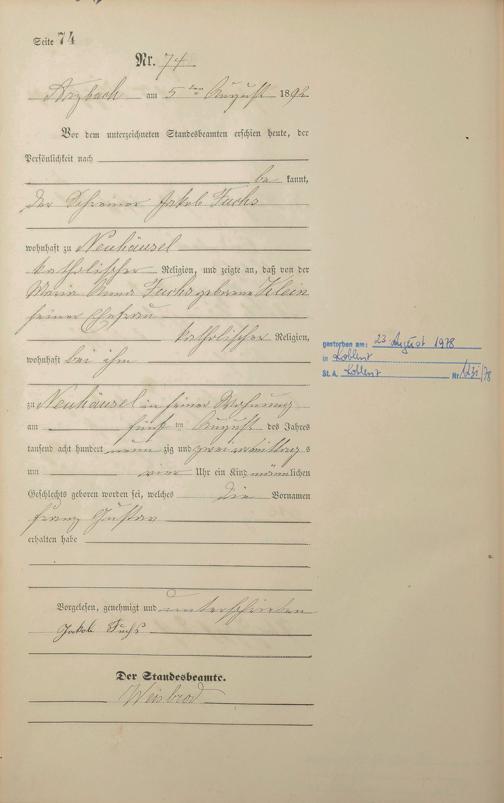 Seite 74
Nr. 74
Arzbach am 5ten August 1892
Vor dem unterzeichneten Standesbeamten erschien heute, der
Persönlichkeit nach
be kannt,
der Schreiner Jakob Fuchs
wohnhaft zu Neuhäusel
katholischer Religion, und zeigte an, daß von der
Maria Anna Fuchs geborene Klein
seiner Ehefrau
katholischer Religion,
wohnhaft bei ihm
zu Neuhäusel in seiner Wohnung
am fünften August des Jahres
tausend acht hundert neun zig und zwei mittag s
um vier Uhr ein Kind männlichen
Geschlechts geboren worden sei, welches die Vornamen
Franz Gustav
erhalten habe
Vorgelesen, genehmigt und unterschrieben
Jakob Fuchs
Der Standesbeamte.
Weisbrod
gestorben am: 23. August 1978
in Koblenz
St. A. Koblenz Nr. /78